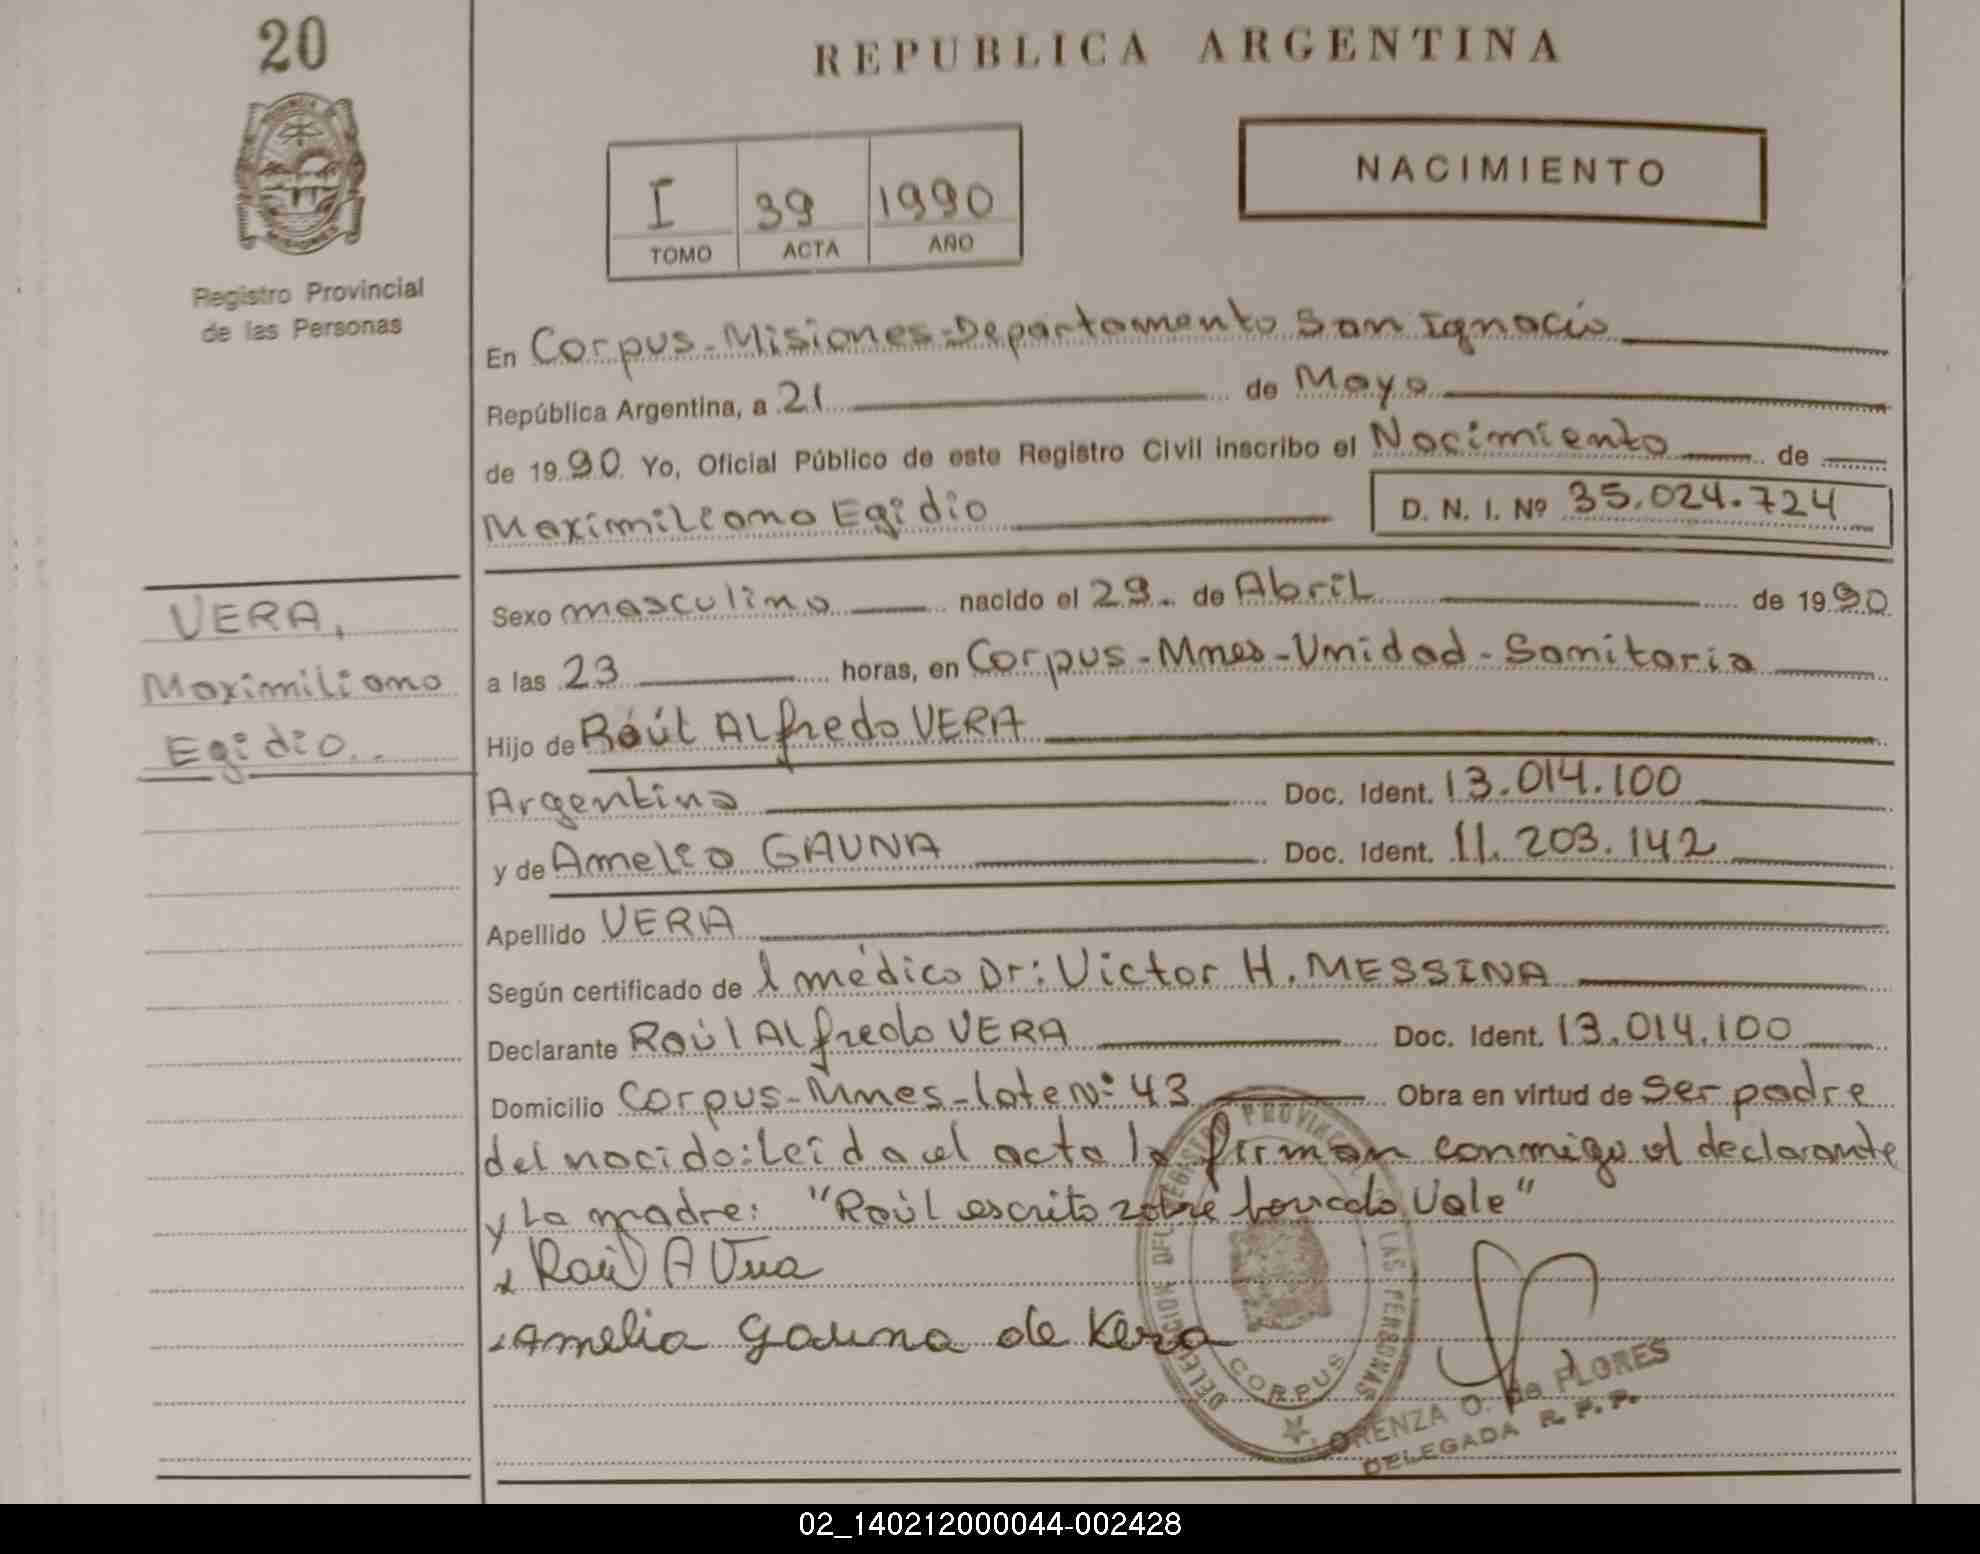 20
REPUBLICA ARGENTINA
PROVINCIA
MISIONES
Registro Provincial
de las Personas
I 39 1990
TOMO ACTA AÑO
NACIMIENTO
En Corpus-Misiones-Departamento San Ignacio
República Argentina, a 21 de Mayo
de 1990 Yo, Oficial Público de este Registro Civil inscribo el Nacimiento de
Maximiliano Egidio D. N. I. Nº 35.024.724
VERA,
Maximiliano
Egidio..
Sexo masculino nacido el 29. de Abril de 1990
a las 23 horas, en Corpus-Mnes-Unidad-Sanitaria
Hijo de Raúl Alfredo VERA
Argentino Doc. Ident. 13.014.100
y de Amelia GAUNA Doc. Ident. 11.203.142
Apellido VERA
Según certificado de l médico Dr: Victor H. MESSINA
Declarante Raúl Alfredo VERA Doc. Ident. 13.014.100
Domicilio Corpus-Mnes-lote Nº 43 Obra en virtud de ser padre
del nacido: leída el acta la firman conmigo el declarante
y la madre: "Raúl escrito sobre borrado Vale"
x Raúl A Vera
Amelia Gauna de Vera
DELEGACION DEL REGISTRO PROVINCIAL DE LAS PERSONAS
CORPUS
LORENZA O. de FLORES
DELEGADA R. P. P.
02_140212000044-002428